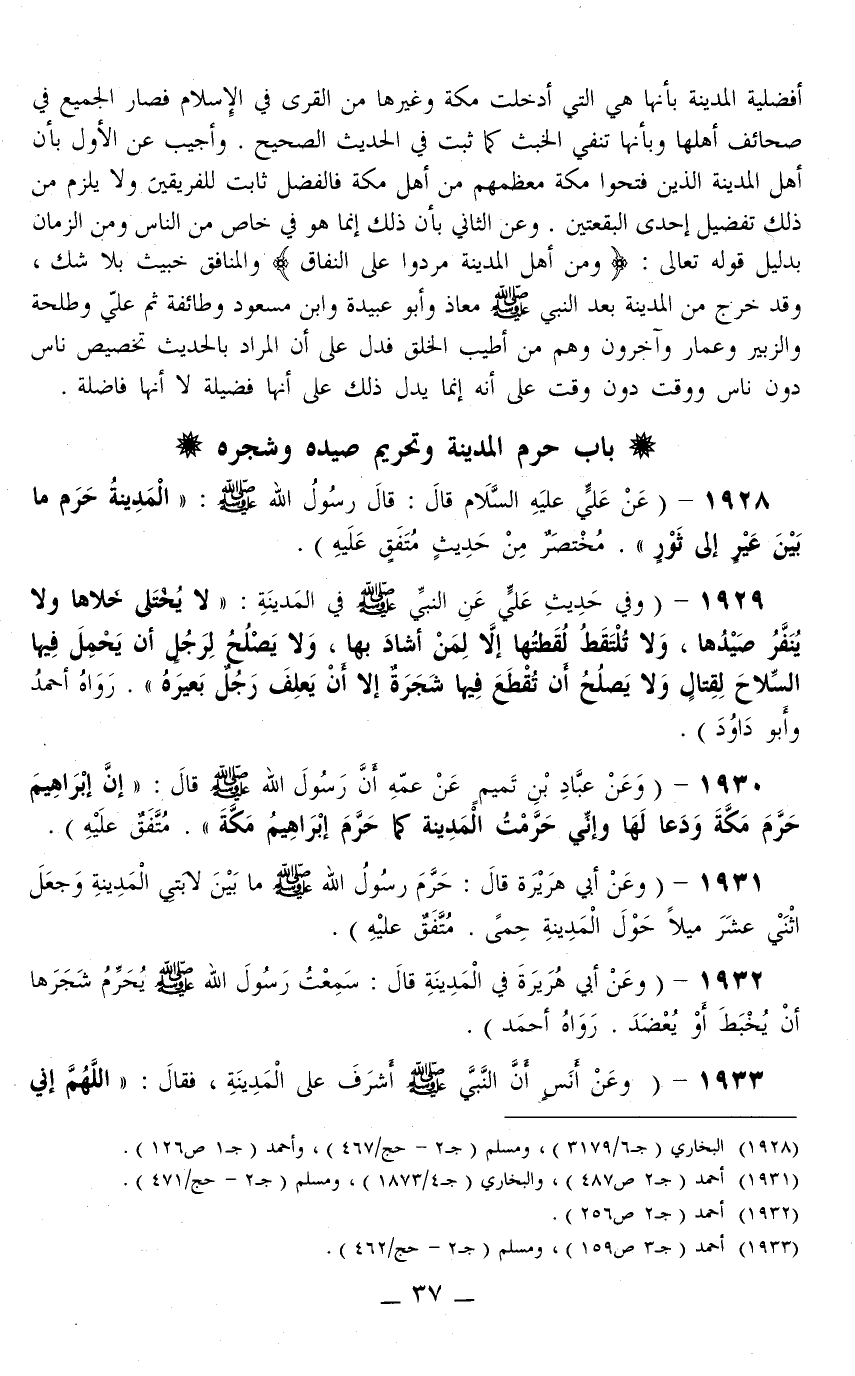 أفضلية المدينة بأنها هي التي أدخلت مكة وغيرها من القرى في الإسلام فصار الجميع في
صحائف أهلها وبأنها تنفي الخبث كما ثبت في الحديث الصحيح . وأجيب عن الأول بأن
أهل المدينة الذين فتحوا مكة معظمهم من أهل مكة فالفضل ثابت للفريقين ولا يلزم من
ذلك تفضيل إحدى البقعتين . وعن الثاني بأن ذلك إنما هو في خاص من الناس ومن الزمان
بدليل قوله تعالى : ﴿ ومن أهل المدينة مردوا على النفاق ﴾ والمنافق خبيث بلا شك ،
وقد خرج من المدينة بعد النبي ﷺ معاذ وأبو عبيدة وابن مسعود وطائفة ثم عليّ وطلحة
والزبير وعمار وآخرون وهم من أطيب الخلق فدل على أن المراد بالحديث تخصيص ناس
دون ناس ووقت دون وقت على أنه إنما يدل ذلك على أنها فضيلة لا أنها فاضلة .
✷ باب حرم المدينة وتحريم صيده وشجره ✷
١٩٢٨ – ( عَنْ عَليٍّ عليَهِ السَّلَام قالَ : قالَ رسُولُ الله ﷺ : « الْمَدِينةُ حَرَم ما
بَيْنَ عَيْرٍ إلى ثَوْرٍ » . مُخْتصَرٌ مِنْ حَدِيثٍ مُتَفَقٍ عَلَيهِ ) .
١٩٢٩ – ( وفي حَدِيثِ عَليٍّ عَنِ النبيِّ ﷺ في المَدينَةِ : « لا يُخْتَلى خَلاها ولا
يُنَفَّرُ صَيْدُها ، وَلا تُلْتَقَطُ لُقَطتُها إلَّا لِمَنْ أشادَ بها ، وَلا يَصْلُحُ لِرَجُلٍ أن يَحْمِلَ فِيها
السِّلاحَ لِقِتالٍ وَلا يَصلُحُ أَن تُقْطَعَ فِيها شَجَرَةٌ إلا أَنْ يَعلِفَ رَجُلٌ بَعيرَهُ » . رَوَاهُ أحمدُ
وأبو دَاوُدَ ) .
١٩٣٠ – ( وَعَنْ عبَّادِ بْنِ تَميمٍ عَنْ عمّهِ أَنَّ رَسُولَ الله ﷺ قالَ : « إنَّ إبْرَاهِيمَ
حَرَّمَ مَكَّةَ وَدَعا لَهَا وإنّي حَرَّمْتُ الْمَدِينة كما حَرَّمَ إبْرَاهِيمُ مَكَّةَ » . مُتَّفَقٌ علَيْهِ ) .
١٩٣١ – ( وعَنْ أبي هرَيْرَة قالَ : حَرَّمَ رسُولُ الله ﷺ ما بَيْنَ لابَتيِ الْمَدِينةِ وَجعَلَ
اثْنَيْ عشَرَ ميلاً حَوْلَ الْمَدِينةِ حِمىً . مُتَّفَقٌ عليْهِ ) .
١٩٣٢ – ( وعَنْ أبي هُرَيرَةَ في الْمَدِينَةِ قالَ : سَمِعْتُ رَسُولَ الله ﷺ يُحَرِّمُ شَجَرَها
أنْ يُخْبَطَ أَوْ يُعْضَدَ . رَوَاهُ أحمَد ) .
١٩٣٣ – ( وعَنْ أَنَسٍ أنَّ النَّبيَّ ﷺ أَشرَفَ على الْمَدِينَةِ ، فقالَ : « اللَّهُمَّ إني
(١٩٢٨) البخاري ( جـ٣١٧٩/٦ ) ، ومسلم ( جـ٢ – حج/٤٦٧ ) ، وأحمد ( جـ١ ص١٢٦ ) .
(١٩٣١) أحمد ( جـ٢ ص٤٨٧ ) ، والبخاري ( جـ١٨٧٣/٤ ) ، ومسلم ( جـ٢ – حج/٤٧١ ) .
(١٩٣٢) أحمد ( جـ٢ ص٢٥٦ ) .
(١٩٣٣) أحمد ( جـ٣ ص١٥٩ ) ، ومسلم ( جـ٢ – حج/٤٦٢ ) .
— ٣٧ —